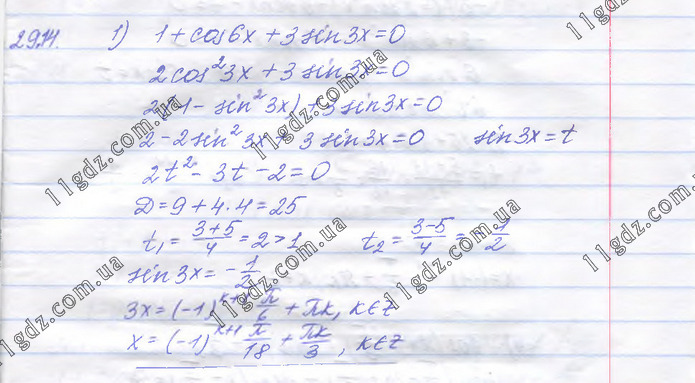 29.14. 1) 1 + cos6x + 3 sin3x = 0
2cos²3x + 3 sin3x = 0
2(1 - sin²3x) + 3 sin3x = 0
2 - 2sin²3x + 3 sin3x = 0 sin3x = t
2t² - 3t - 2 = 0
D = 9 + 4·4 = 25
t₁ = (3+5)/4 = 2 > 1 t₂ = (3-5)/4 = -1/2
sin3x = -1/2
3x = (-1)^(k+1) π/6 + πk, k∈Z
x = (-1)^(k+1) π/18 + πk/3, k∈Z
11gdz.com.ua
11gdz.com.ua
11gdz.com.ua
11gdz.com.ua
11gdz.com.ua
11gdz.com.ua
11gdz.com.ua